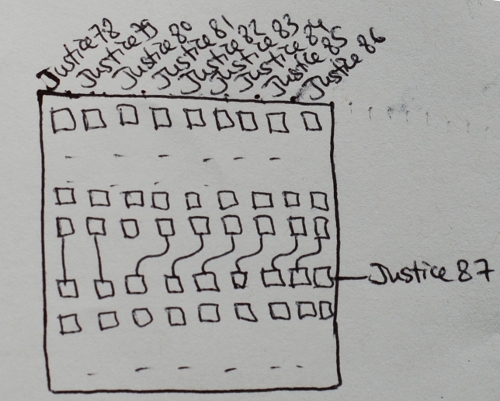 Justice 78
Justice 79
Justice 80
Justice 81
Justice 82
Justice 83
Justice 84
Justice 85
Justice 86
Justice 87